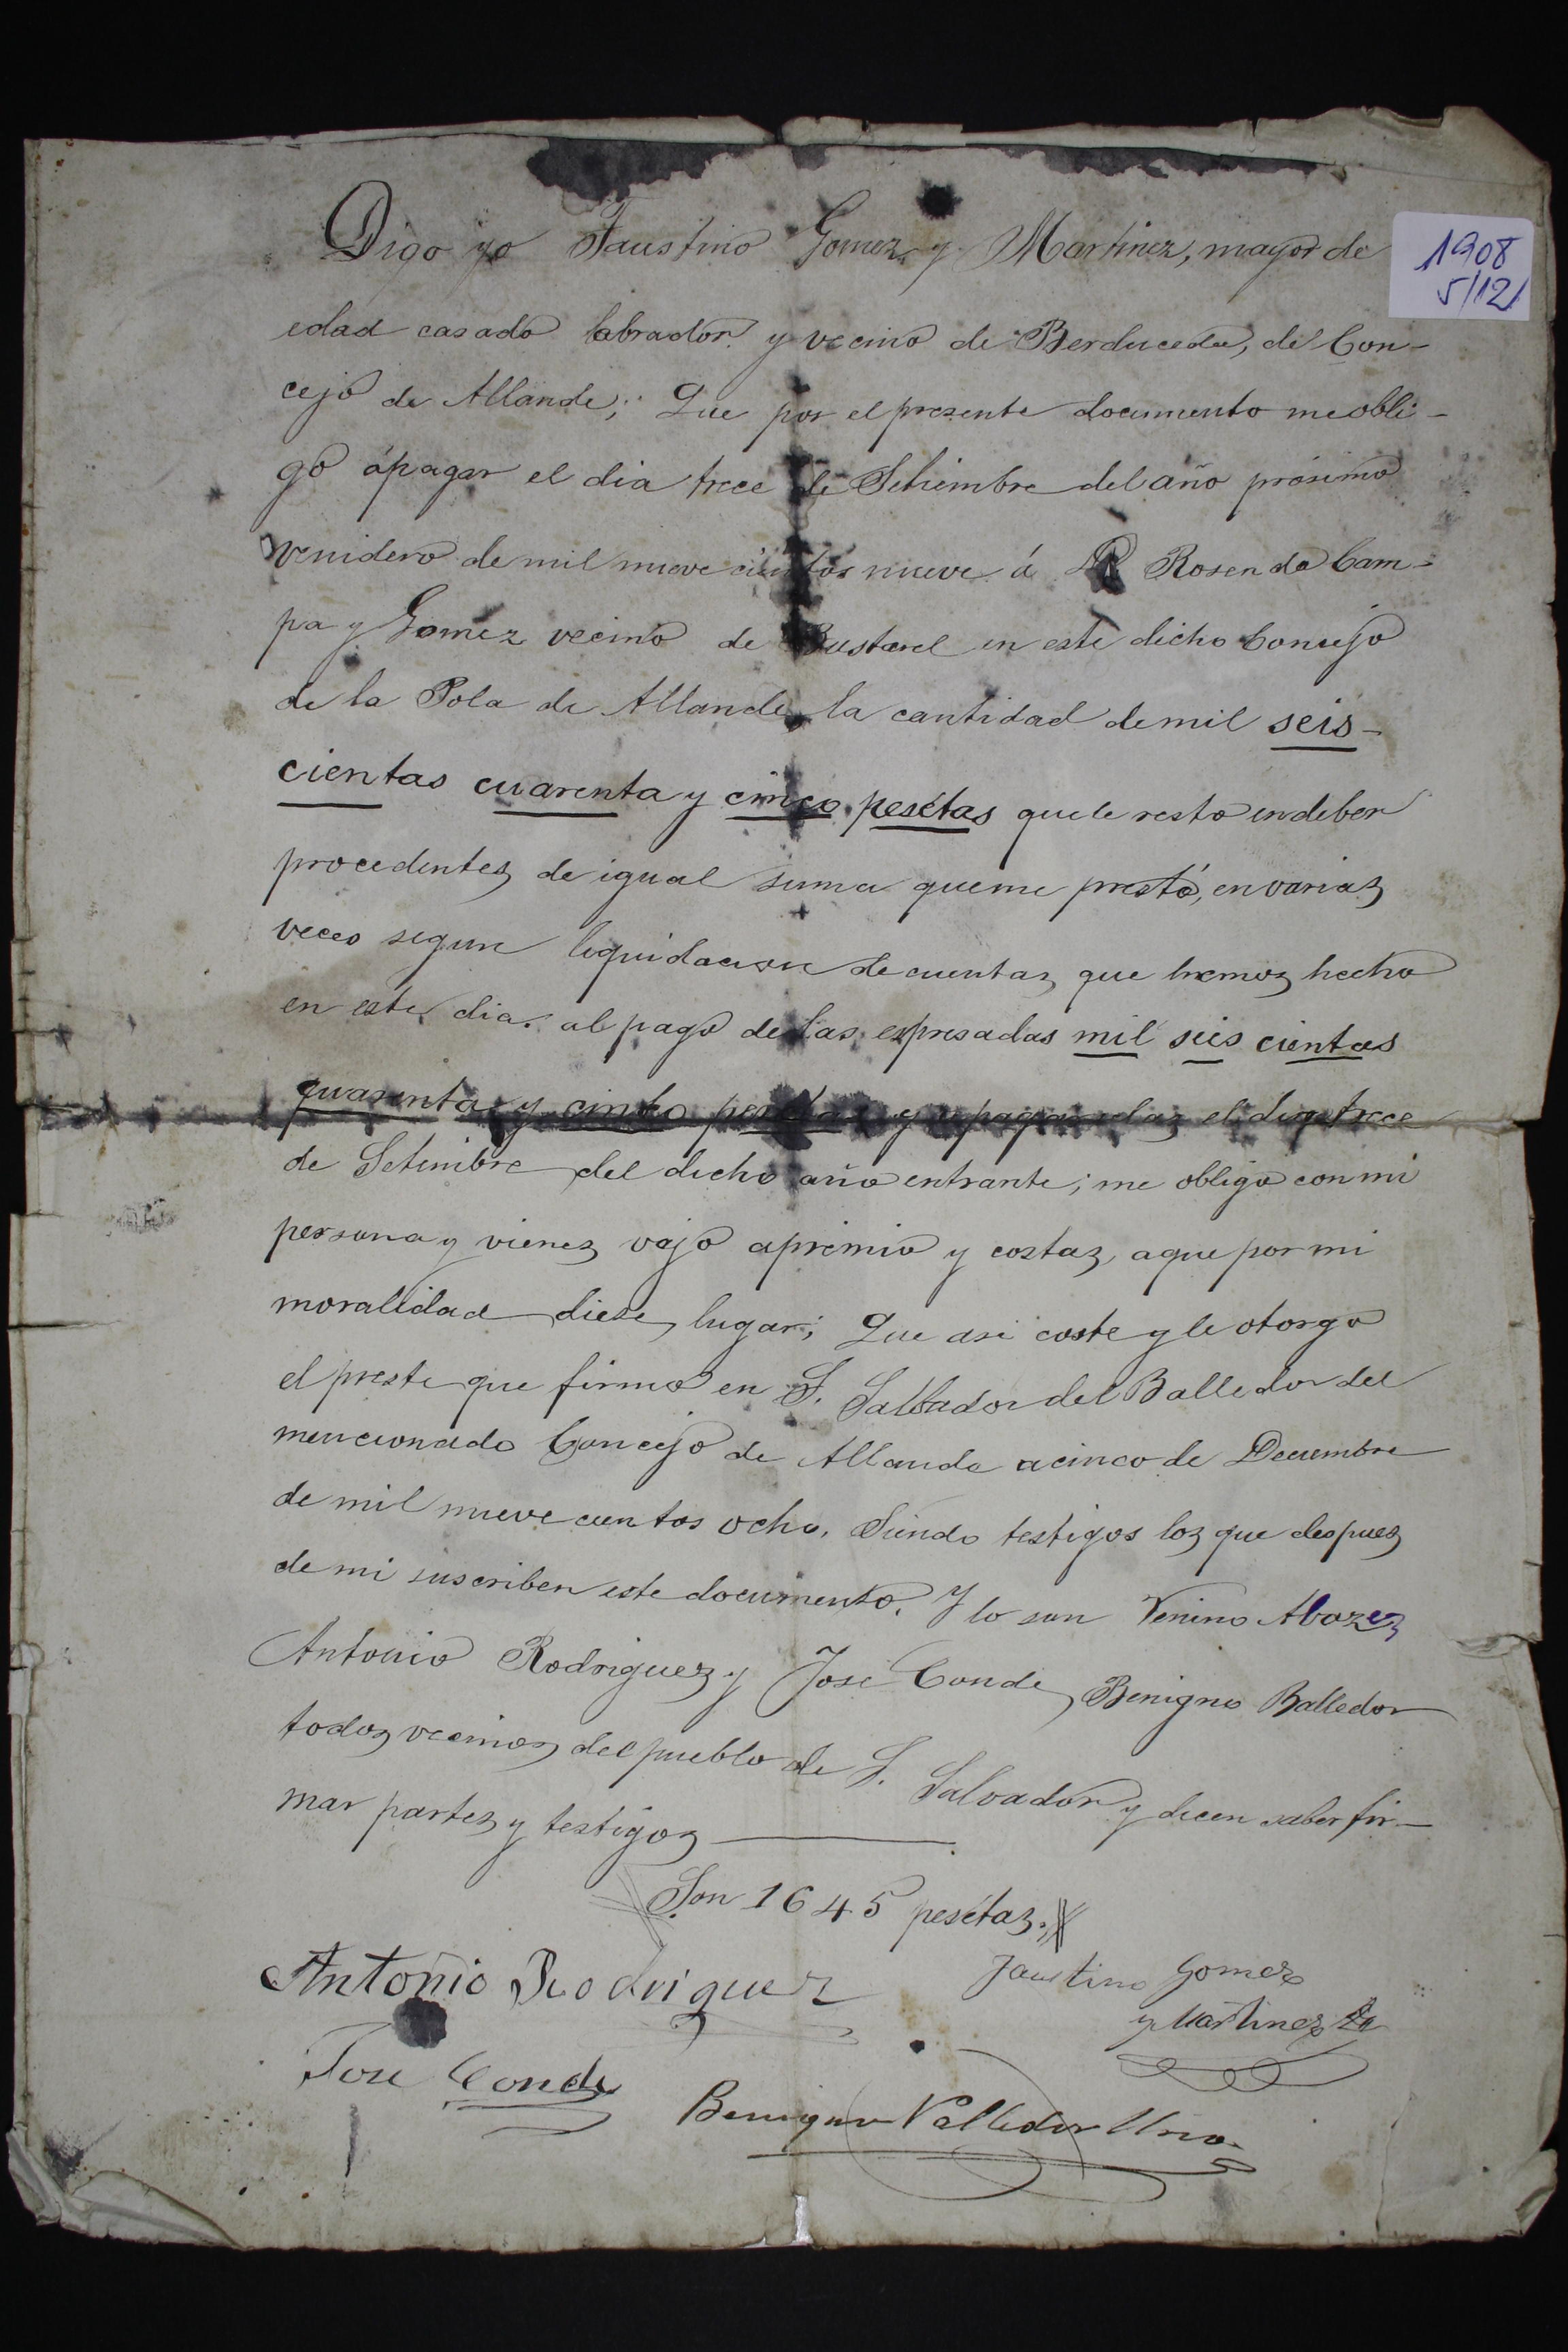 1908
5/12/
Digo yo Faustino Gomez y Martinez, mayor de
edad casado labrador y vecino de Berducedo, del Con-
cejo de Allande; Que por el presente documento me obli-
go ápagar el dia trece de Setiembre del año prosimo
venidero de mil nueve cientos nueve á Rosendo Cam-
pa y Gomez vecino de Bustarel en este dicho Concejo
de la Pola de Allande, la cantidad de mil seis-
cientas cuarenta y cinco pesétas que le resto en deber
procedentes de igual suma que me prestó, en varias
veces segun liquidacion de cuentas que hemos hecho
en este dia. al pago de las espresadas mil seis cientas
quarenta y cinco pesetas y a pagarselas el dia trece
de Setimbre del dicho año entrante; me obligo con mi
persona y vienes vajo apremio y costas, a que por mi
moralidad diese lugar; Que asi coste y le otorgo
el preste que firmo en S. Salbador del Balledor del
mencionado Concejo de Allande a cinco de Decembre
de mil nueve cientos ocho. Siendo testigos los que despues
de mi suscriben este documento. Y lo son Venino Abarez
Antonio Rodriguez y José Conde, Benigno Balledor
todos vecinos del pueblo de S. Salvador y dicen saber fir-
mar partes y testigos
Son 1645 pesétas.
Antonio Rodriguez
Faustino Gomez
y Martinez
Jose Conde
Benigno Valledor Uria